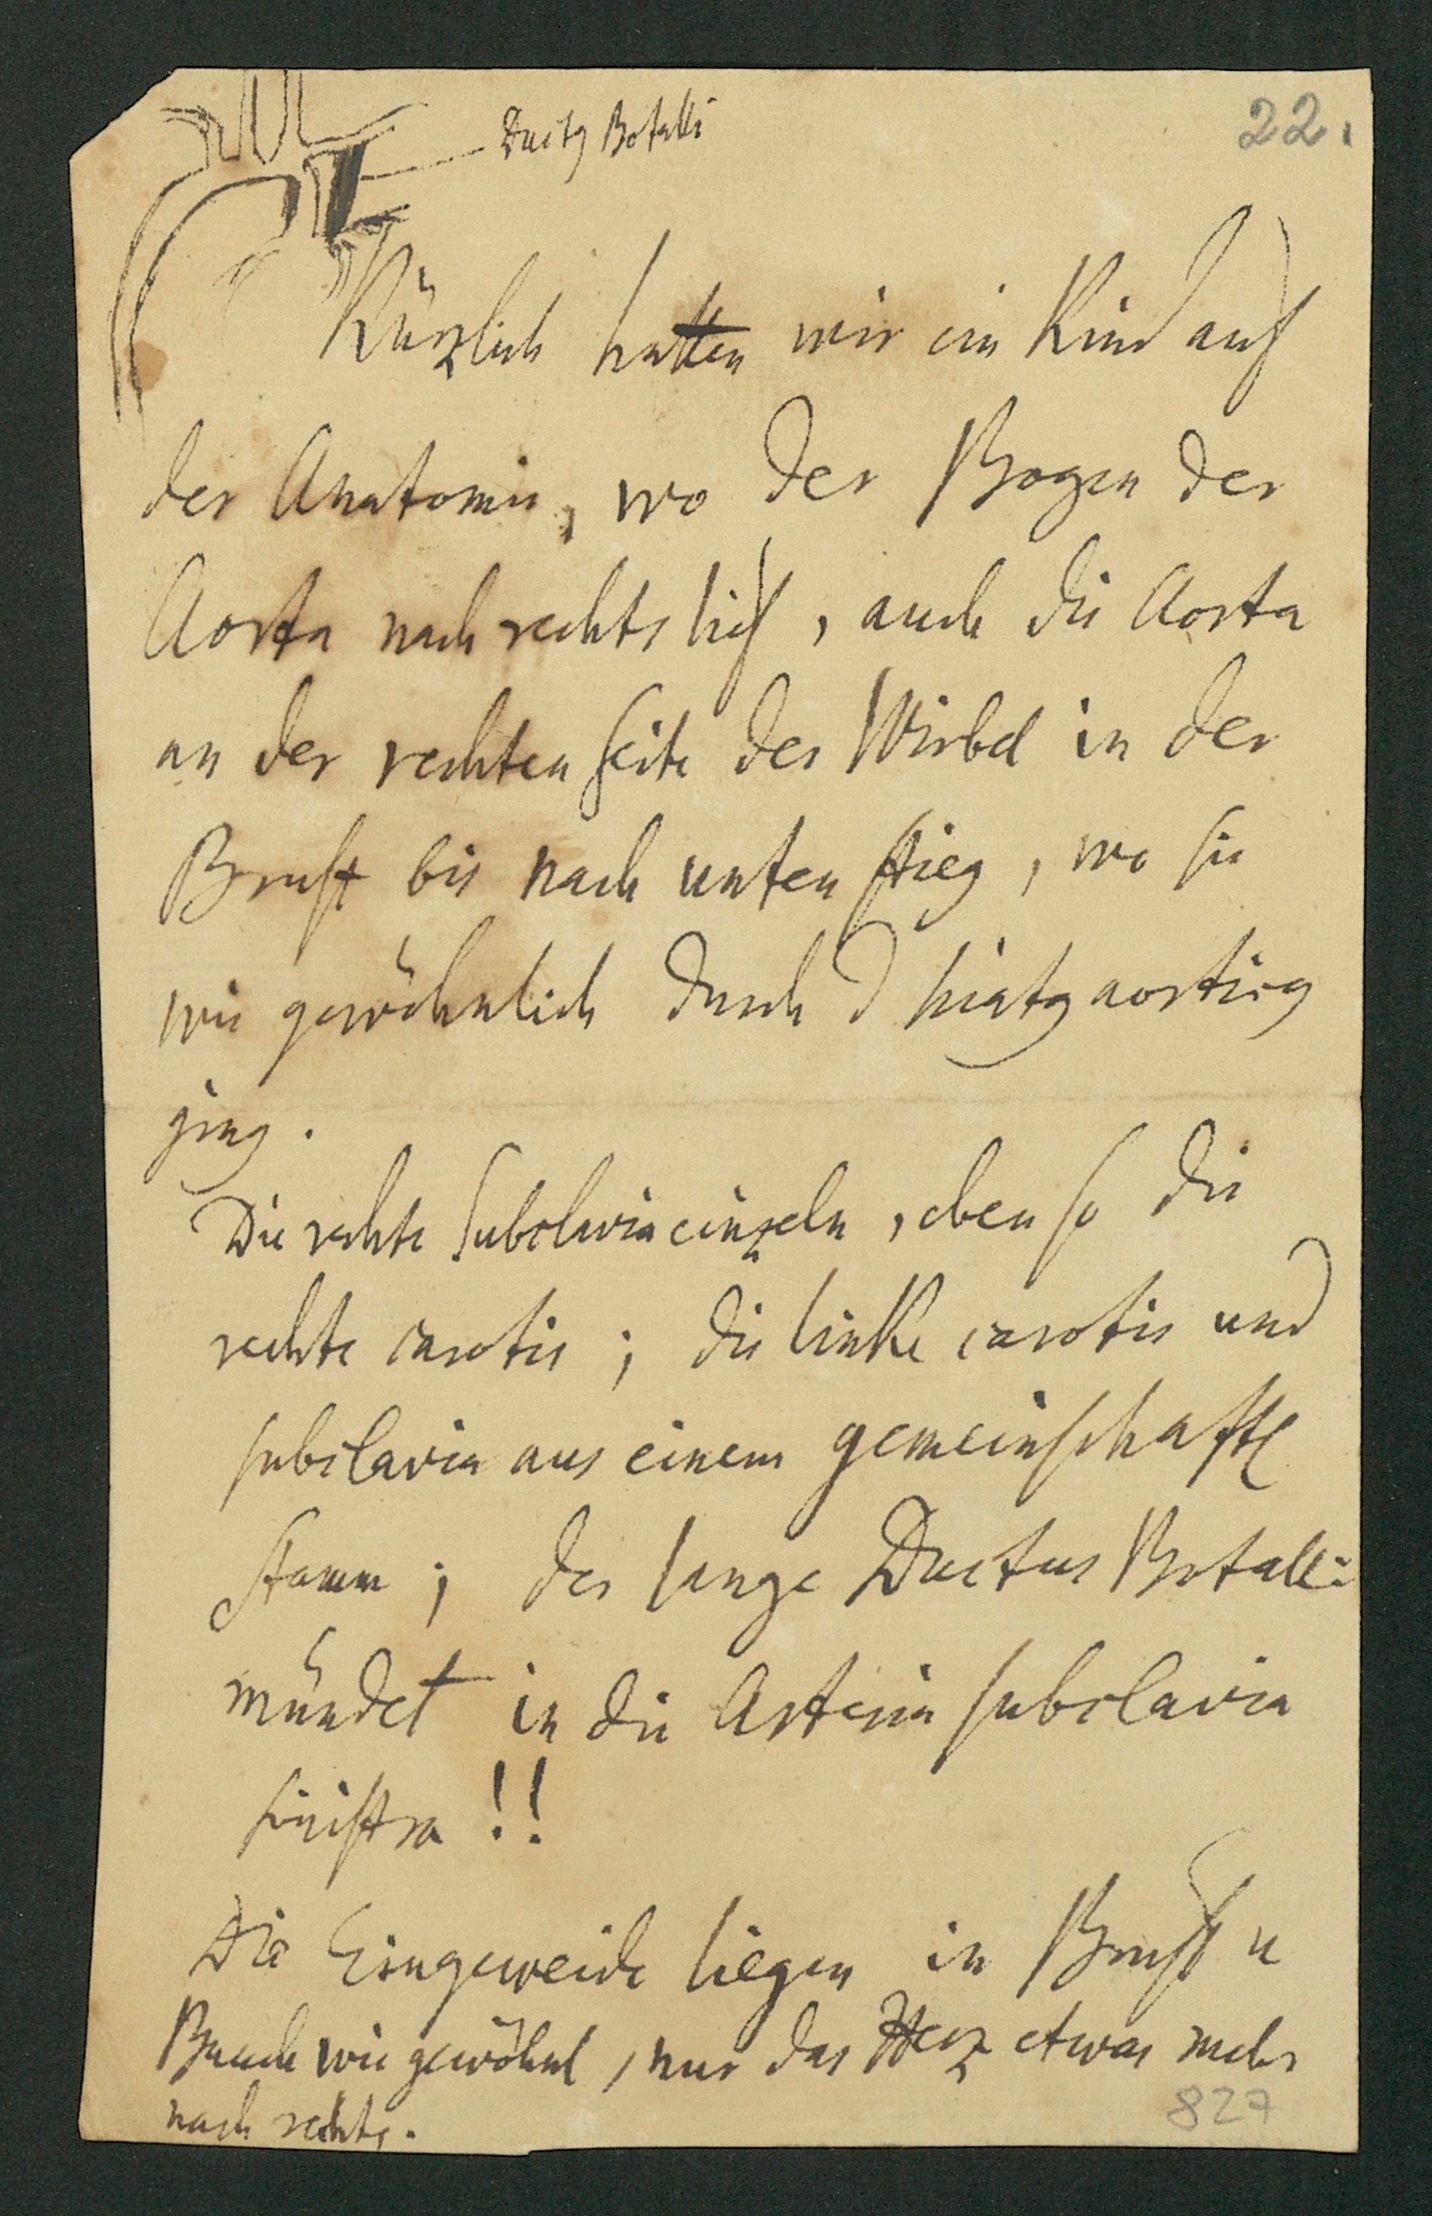 22.
Ductus Botalli
Kürzlich hatten wir ein Kind auf
der Anatomie, wo der Bogen der
Aorta nach rechts lief, auch die Aorta
an der rechten Seite der Wirbel in der
Brust bis nach unten stieg, wo sie
wie gewöhnlich durch d hiatus aorticus
ging.
Die rechte Subclavia einzeln, eben so die
rechte carotis; die linke carotis und
subclavia aus einem gemeinschaftl
Stamm; der lange Ductus Botalli
mündet in die Arteria subclavia
sinistra!!
Die Eingeweide liegen in Brust u
Bauch wie gewöhnl, nur das Herz etwas mehr
nach rechts.
827